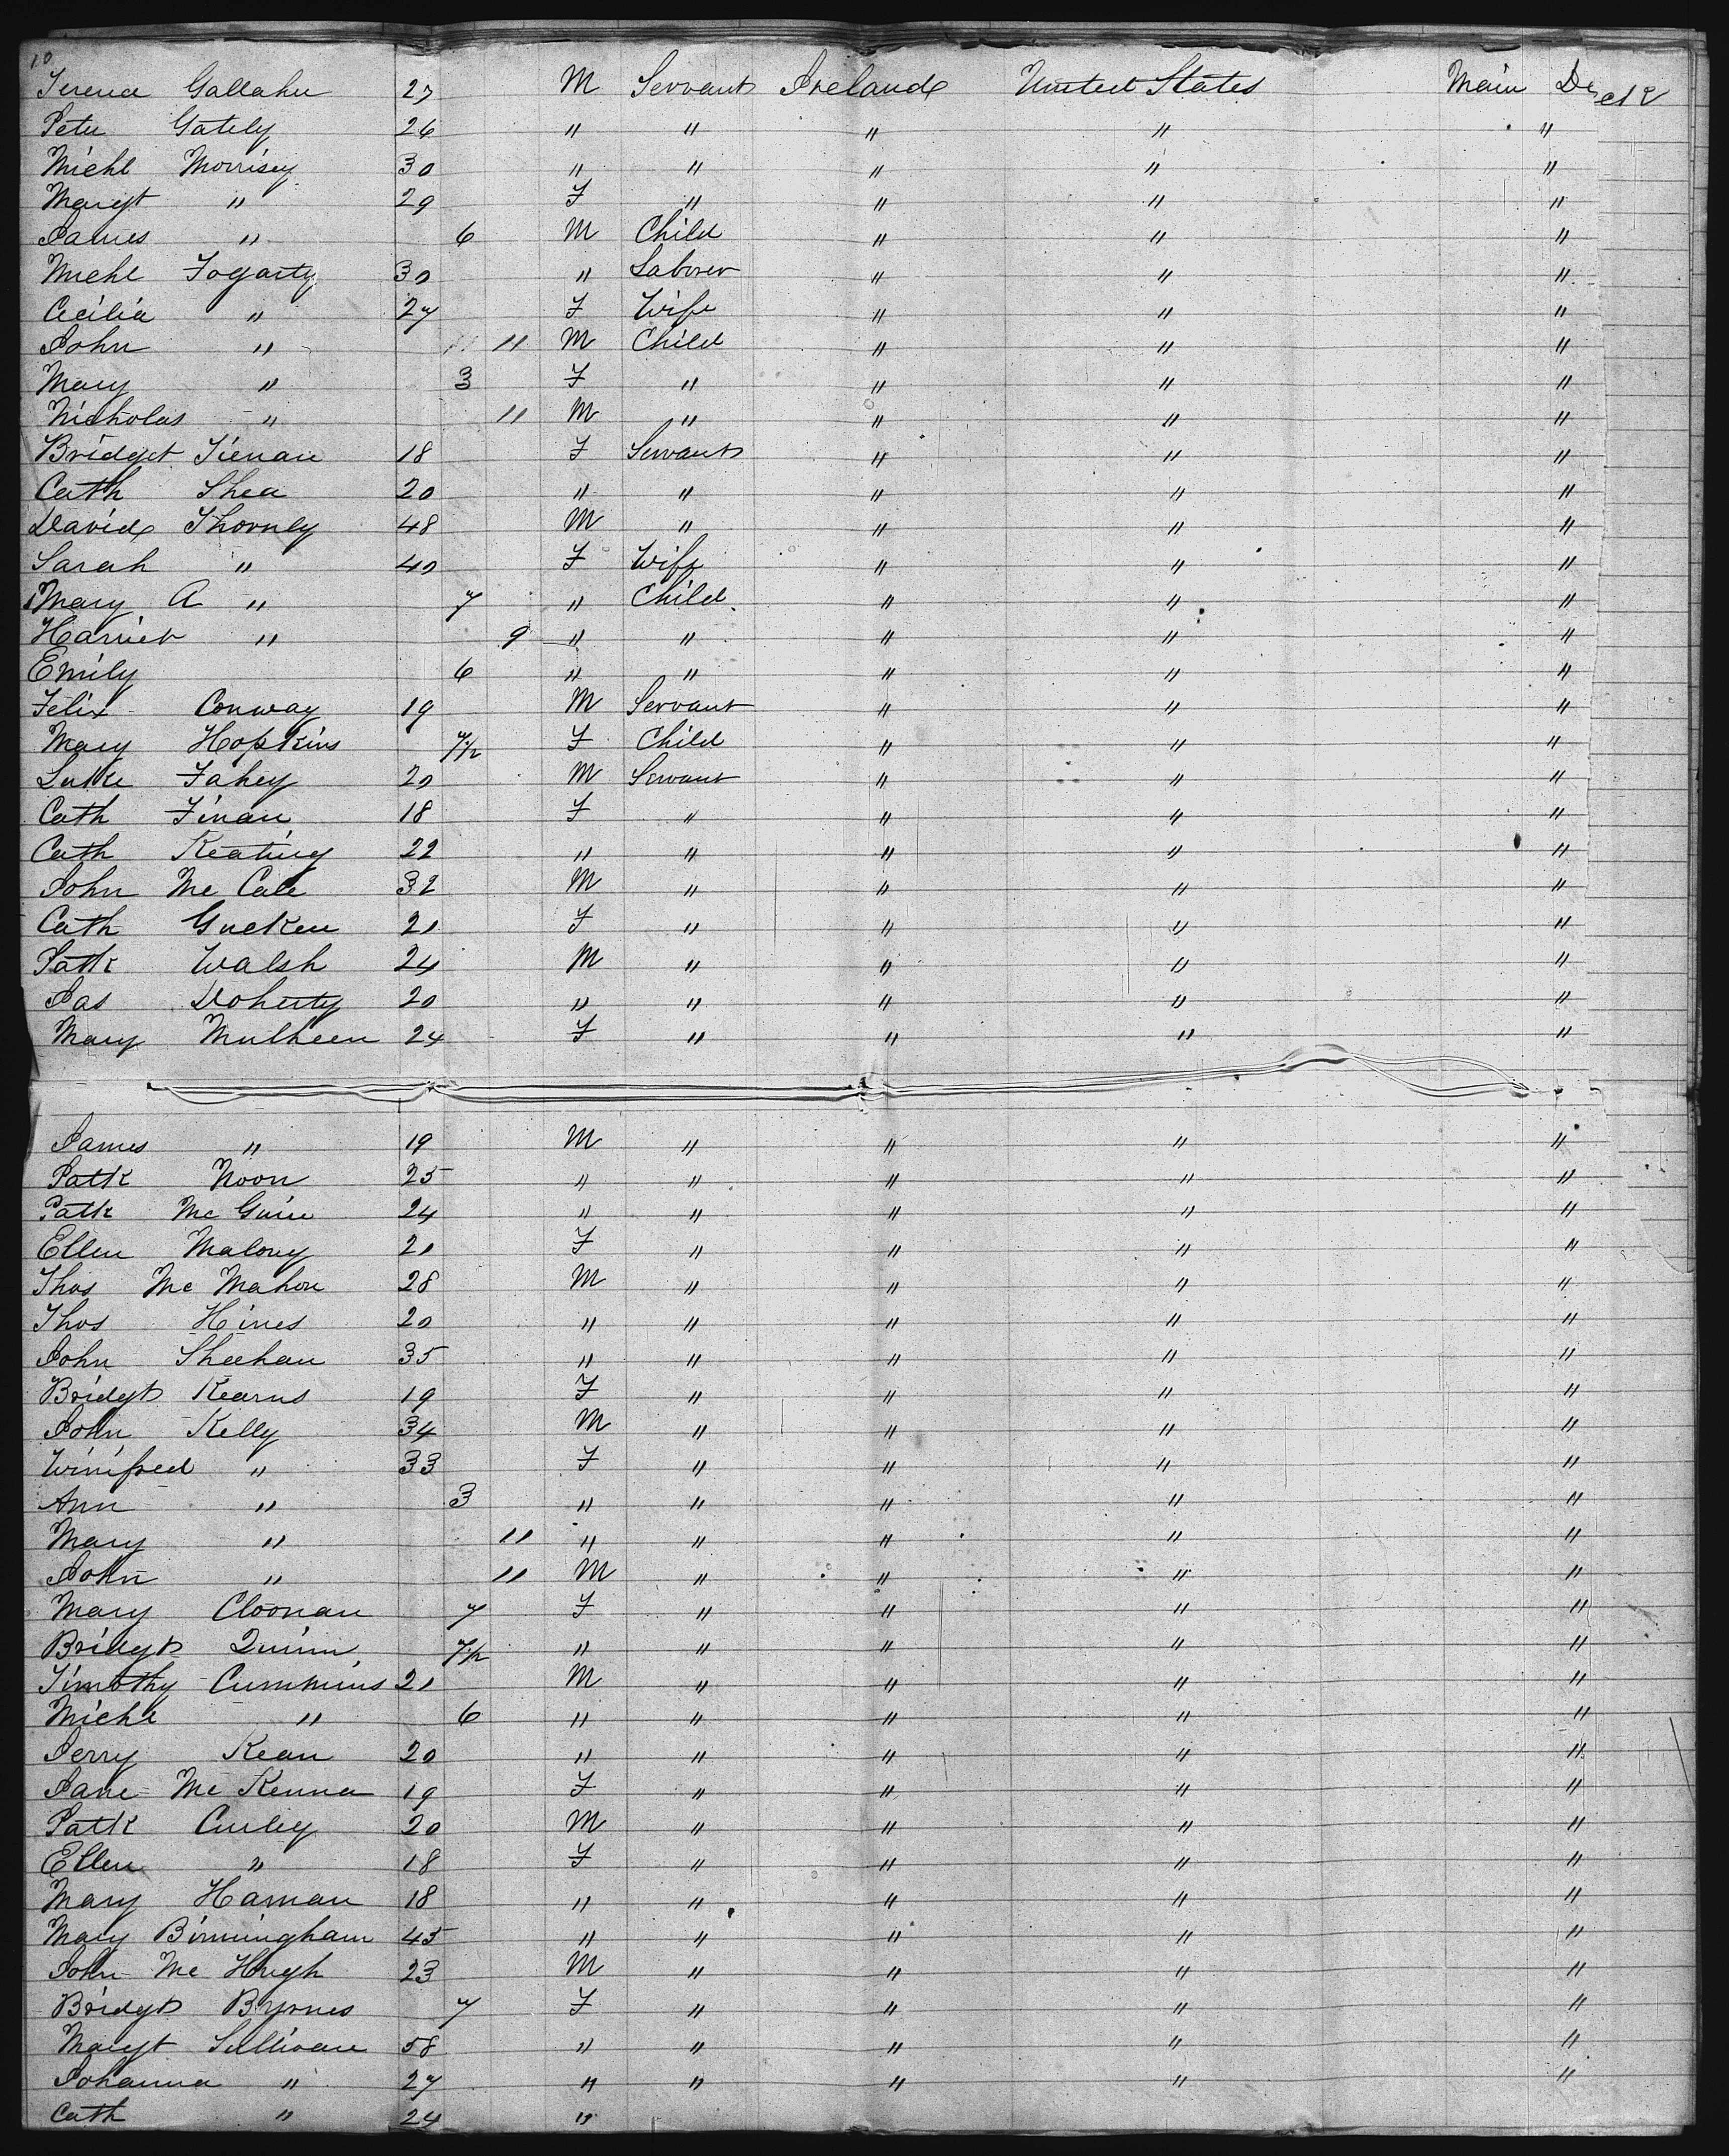 10
Terence Gallaher 27 M Servant Ireland United States Main Deck
Peter Gately 26 " " " " "
Michl Morrisey 30 " " " " "
Margt " 29 F " " " "
James " 6 M Child " " "
Michl Fogarty 30 " Laborer " " "
Cecilia " 27 F Wife " " "
John " 11 M Child " " "
Mary " 3 F " " " "
Nicholas " 11 M " " " "
Bridget Tienan 18 F Servant " " "
Cath Shea 20 " " " " "
David Thornly 48 M " " " "
Sarah " 40 F Wife " " "
Mary A " 7 " Child " " "
Harriet " 9 " " " " "
Emily 6 " " " " "
Felix Conway 19 M Servant " " "
Mary Hopkins 7/12 F Child " " "
Luke Fahey 20 M Servant " " "
Cath Finan 18 F " " " "
Cath Keating 22 " " " " "
John Mc Cale 32 M " " " "
Cath 21 F " " " "
Patk Walsh 24 M " " " "
Jas Doherty 20 " " " " "
Mary Mulheen 24 F " " " "
James " 19 M " " " "
Patk Noon 25 " " " " "
Patk Mc Guire 24 " " " " "
Ellen Malony 21 F " " " "
Thos Mc Mahon 28 M " " " "
Thos Hines 20 " " " " "
John Sheehan 35 " " " " "
Bridgt Kearns 19 F " " " "
John Kelly 34 M " " " "
Winifred " 33 F " " " "
Ann " 3 " " " " "
Mary " 11 " " " " "
John " 11 M " " " "
Mary Cloonan 7 F " " " "
Bridgt Quinn 7/12 " " " " "
Timothy Cummins 21 M " " " "
Michl " 6 " " " " "
Jerry Kean 20 " " " " "
Jane Mc Kenna 19 F " " " "
Patk Curley 20 M " " " "
Ellen " 18 F " " " "
Mary Harnan 18 " " " " "
Mary Birmingham 45 " " " " "
John Mc Hugh 23 M " " " "
Bridgt Byrnes 7 F " " " "
Margt Sullivan 58 " " " " "
Johanna " 27 " " " " "
Cath " 24 "